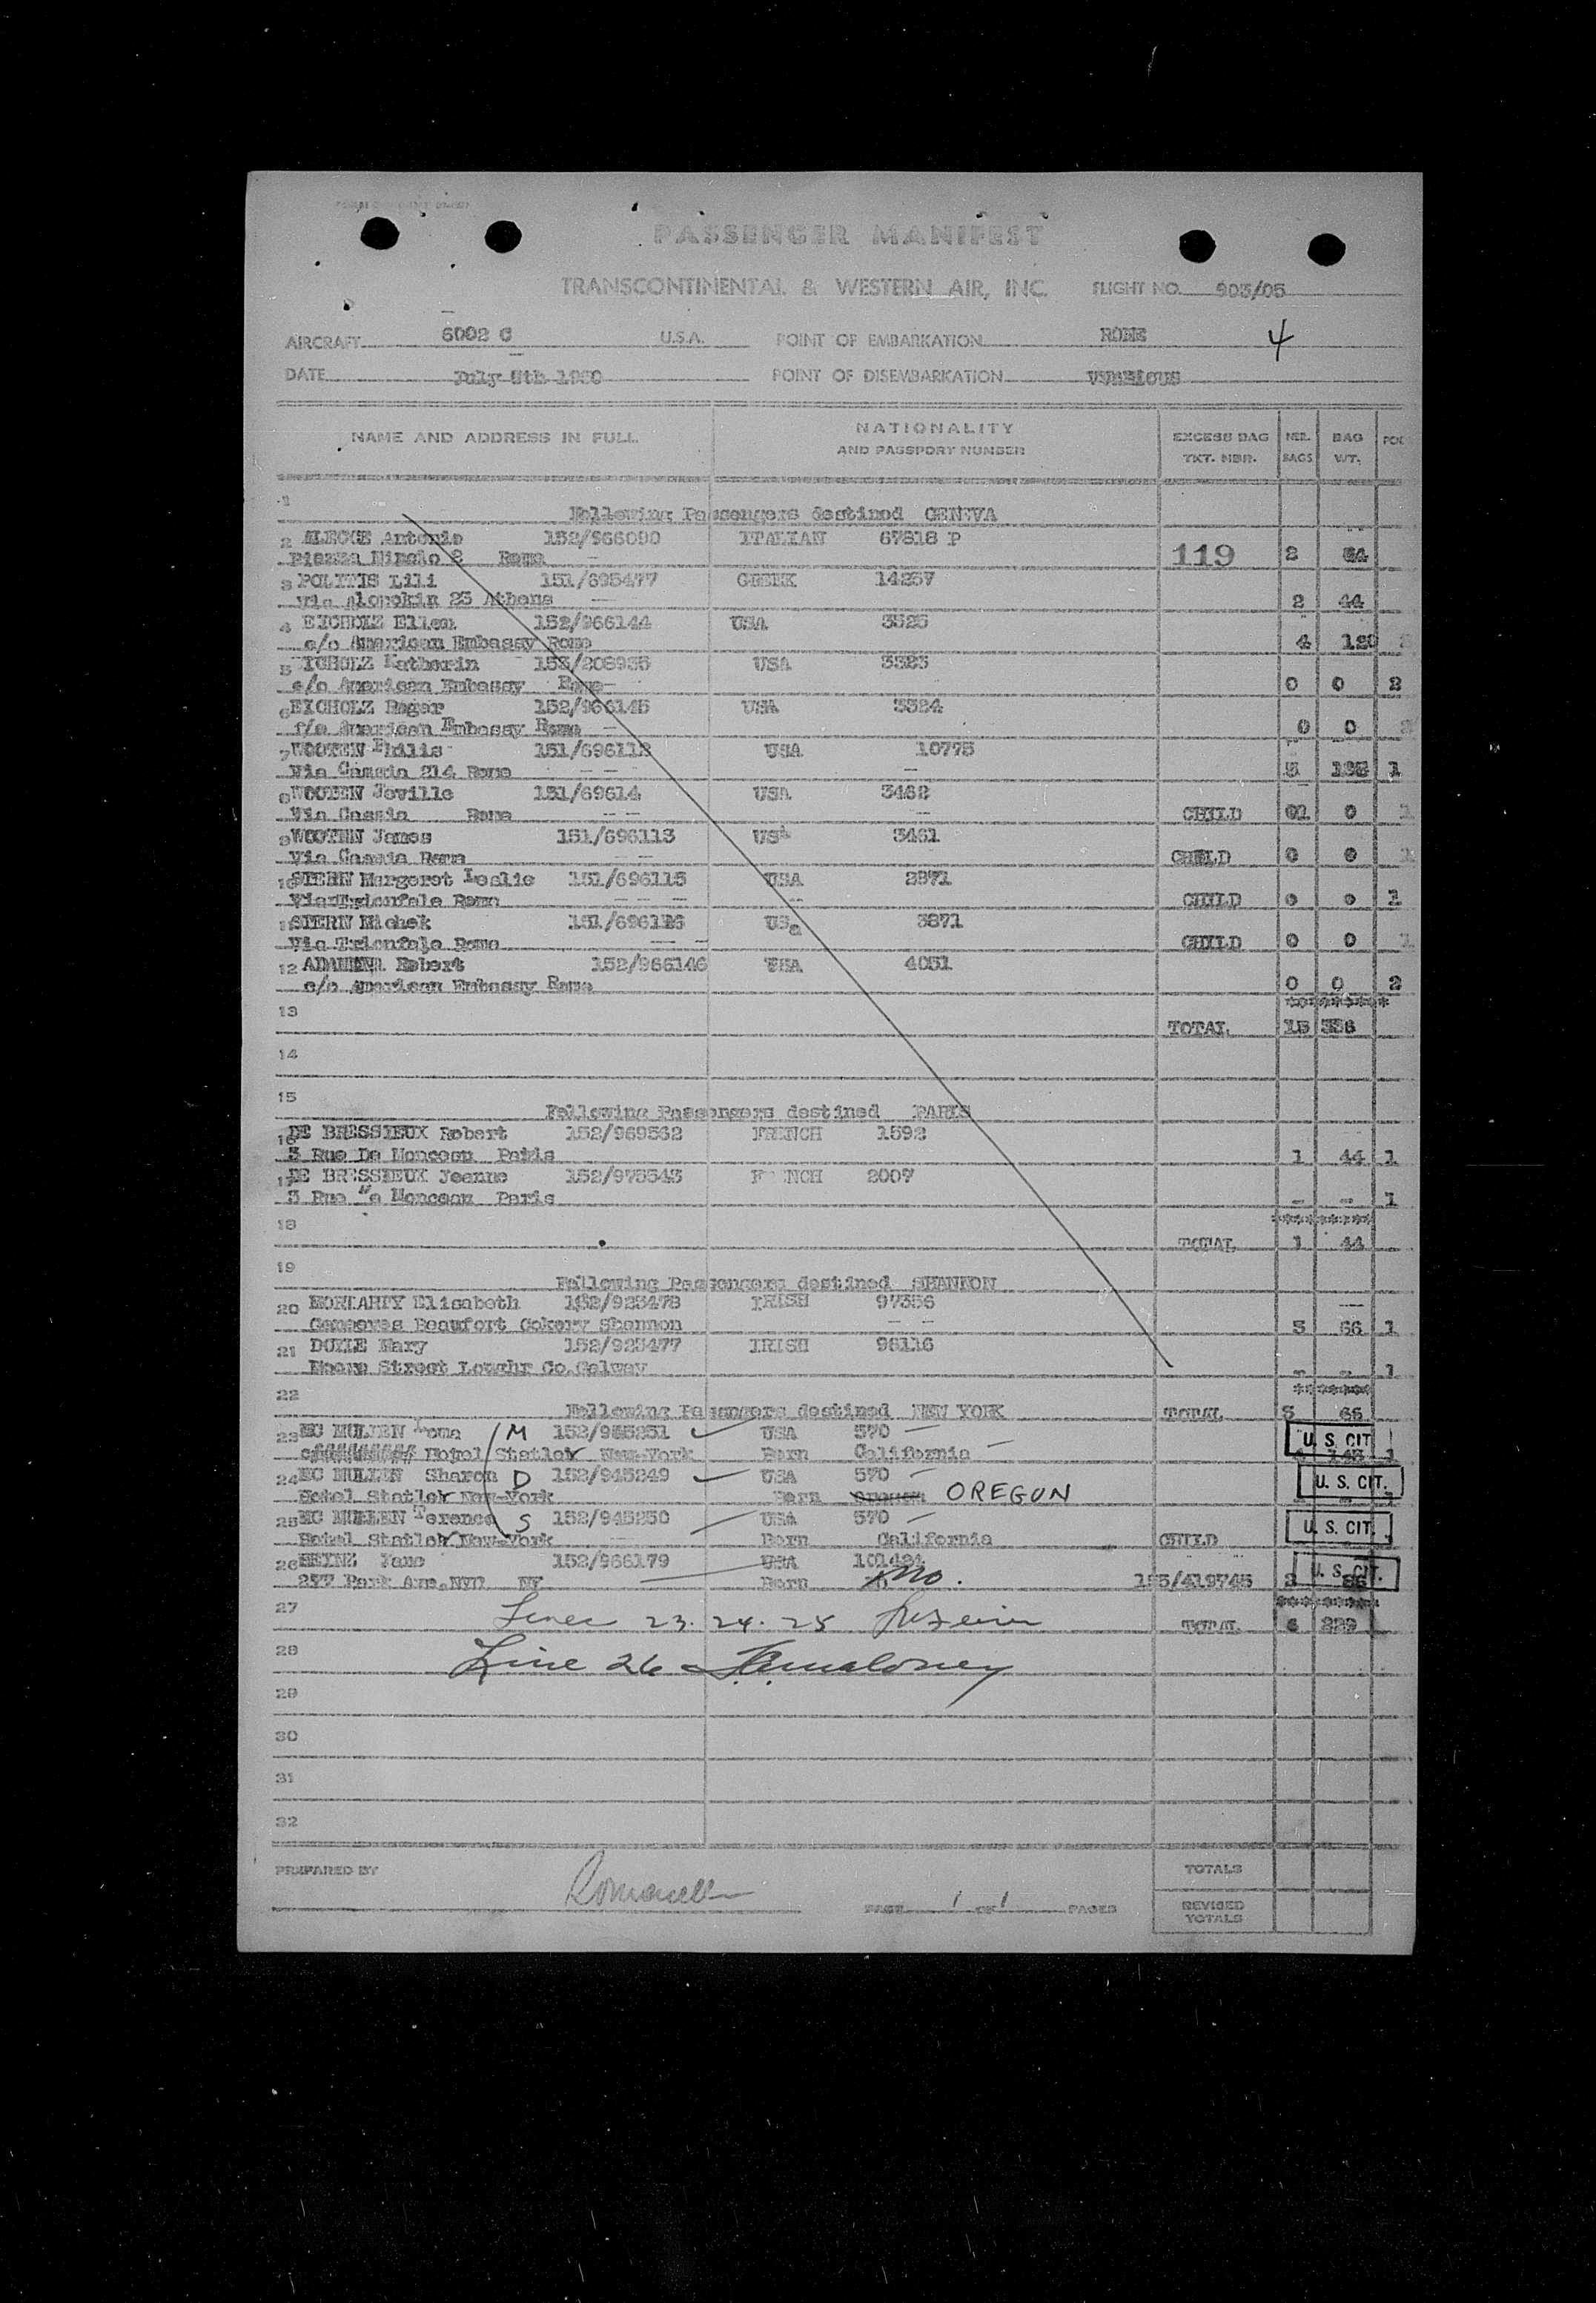 PASSENGER MANIFEST
TRANSCONTINENTAL & WESTERN AIR, INC. FLIGHT NO. 903/05
AIRCRAFT 6002 C U.S.A. POINT OF EMBARKATION ROME 4
DATE July 1950 POINT OF DISEMBARKATION
NAME AND ADDRESS IN FULL NATIONALITY AND PASSPORT NUMBER EXCESS BAG TKT. NBR. NBR. BAGS BAG WT.
1 Following Passengers destined GENEVA
2 Antonio 152/966090 ITALIAN 67818 P
Piazza 2 Rome 119 2
3 POLITIS Lili 151/695477 GREEK 14257
Via 23 Athens 2 44
4 EICHOLZ Ellen 152/966144 USA 3525
c/o American Embassy Rome 4
5 ICHOLZ Katherin USA
c/o American Embassy Rome 0 0 2
6 EICHOLZ Roger 152/966145 USA 3524
American Embassy Rome 0 0
7 WOOTEN USA 10775
Via Cassia 214 Rome 1
8 WOOTEN 151/69614 USA 3462
Via Cassia Rome CHILD 0
9 WOOTEN James 151/696113 USA 3461
Via Cassia Rome CHILD 0 0 1
10 STERN Margaret Leslie 151/696115 USA
Via Trionfale Rome CHILD 0 0 1
11 STERN USa 3871
Via Trionfale Rome CHILD 0 0 1
12 Robert 152/966146 USA 4051
c/o American Embassy Rome 0 0 2
*********
13 TOTAL 15
14
15 Following Passengers destined PARIS
16 DE BRESSIEUX Robert 152/969562 FRENCH 1592
3 Rue De Monceau Paris 1 44 1
17 DE BRESSIEUX Jeanne 152/975543 F NCH 2007
3 Rue Monceau Paris - - 1
18 *********
TOTAL 1 44
19 Following Passengers destined SHANNON
20 MORIARTY Elisabeth 152/923478 IRISH 97356
Beaufort Shannon 3 66 1
21 DOYLE Mary 152/923477 IRISH 96116
Street Co.Galway - - 1
22 *******
Following Passengers destined NEW YORK TOTAL 3 66
23 MC MULLEN M USA 570 U. S. CIT.
Hotel Statler New-York Born California 1
24 MC MULLEN Sharon D 152/945249 USA 570 U. S. CIT.
Hotel Statler New-York Born OREGON
25 MC MULLEN Terence S 152/945250 USA 570 U. S. CIT.
Hotel Statler New-York Born California CHILD
26 HEINZ Jane 152/966179 USA U. S. CIT.
277 Park Ave.NYC NY Born Mo. 155/419745
********
27 Lines 23. 24. 25 TOTAL 6 229
28 Line 26 Maloney
29
30
31
32
PREPARED BY TOTALS
PAGE 1 OF 1 PAGES REVISED TOTALS